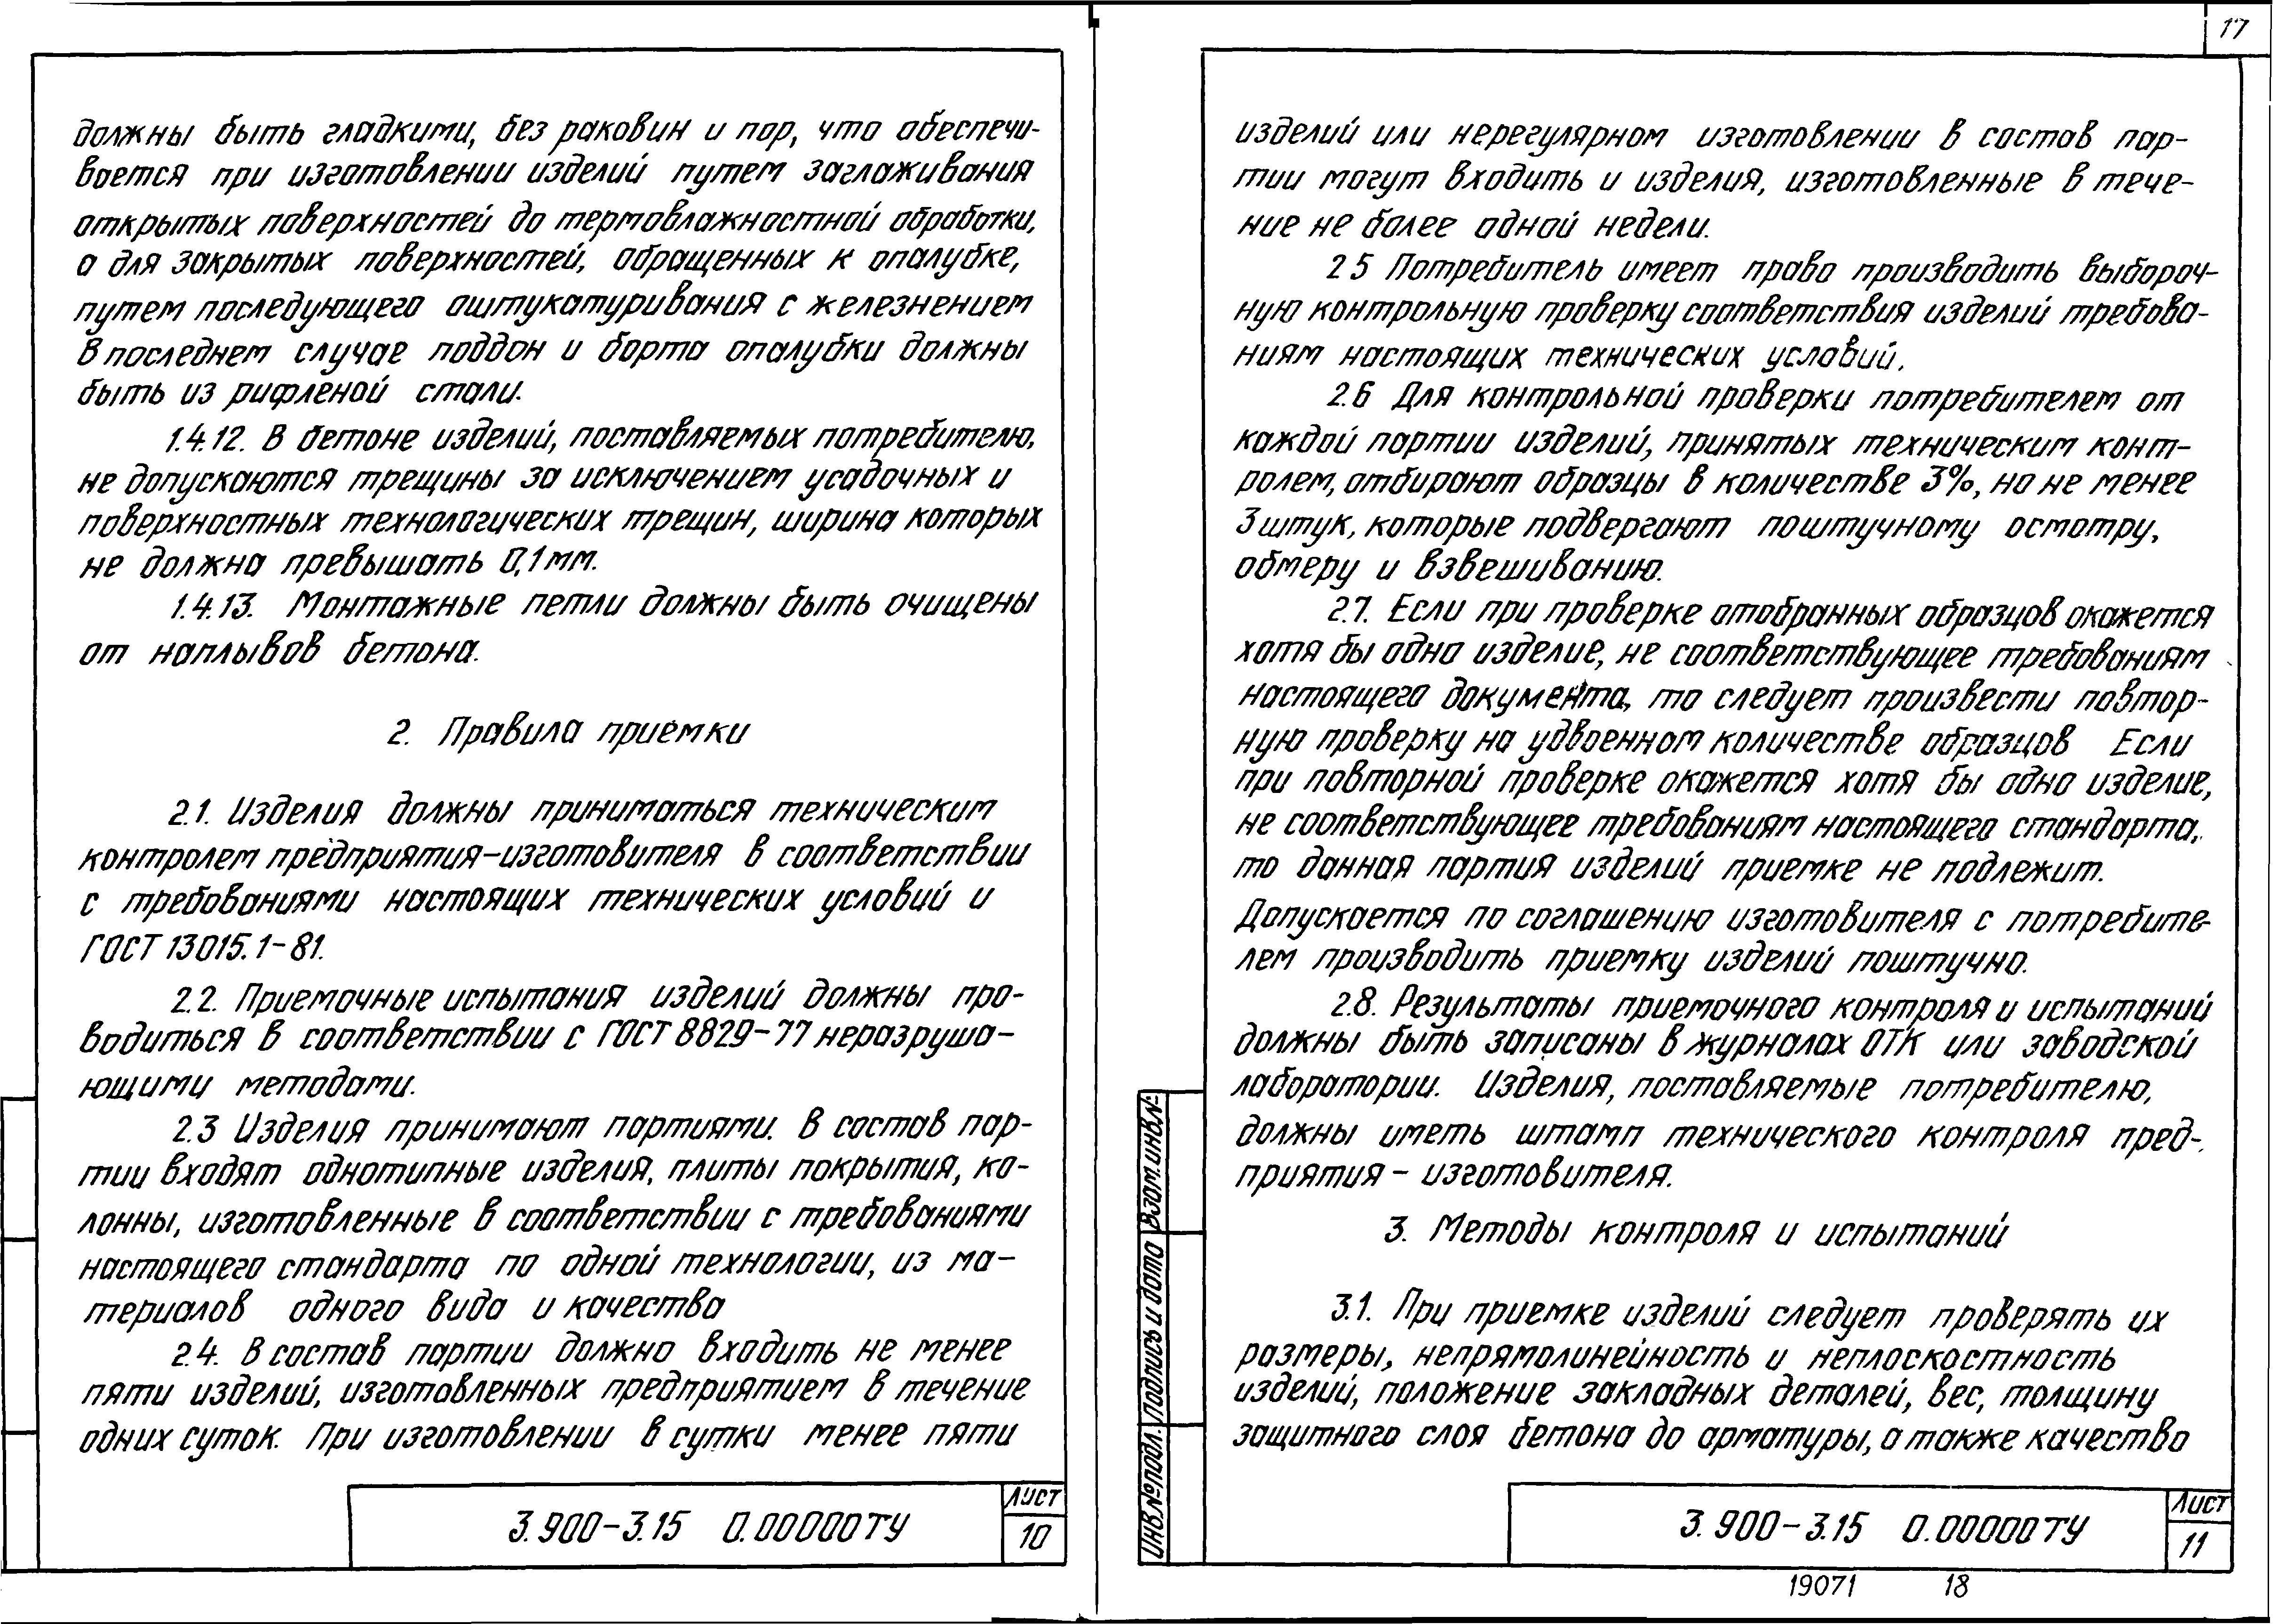 должны быть гладкими, без раковин и пор, что обеспечи-
вается при изготовлении изделий путем заглаживания
открытых поверхностей до термовлажностной обработки,
а для закрытых поверхностей, обращенных к опалубке,
путем последующего оштукатуривания с железнением
В последнем случае поддон и борта опалубки должны
быть из рифленой стали.
1.4.12. В бетоне изделий, поставляемых потребителю,
не допускаются трещины за исключением усадочных и
поверхностных технологических трещин, ширина которых
не должна превышать 0,1 мм.
1.4.13. Монтажные петли должны быть очищены
от наплывов бетона.
2. Правила приемки
2.1. Изделия должны приниматься техническим
контролем предприятия-изготовителя в соответствии
с требованиями настоящих технических условий и
ГОСТ 13015.1-81.
2.2. Приемочные испытания изделий должны про-
водиться в соответствии с ГОСТ 8829-77 неразруша-
ющими методами.
2.3 Изделия принимают партиями. В состав пар-
тии входят однотипные изделия, плиты покрытия, ко-
лонны, изготовленные в соответствии с требованиями
настоящего стандарта по одной технологии, из ма-
териалов одного вида и качества
2.4. В состав партии должно входить не менее
пяти изделий, изготовленных предприятием в течение
одних суток. При изготовлении в сутки менее пяти
3.900-3.15 0.00000ТУ
Лист
10
17
изделий или нерегулярном изготовлении в состав пар-
тии могут входить и изделия, изготовленные в тече-
ние не более одной недели.
2 5 Потребитель имеет право производить выбороч-
ную контрольную проверку соответствия изделий требова-
ниям настоящих технических условий.
2.6 Для контрольной проверки потребителем от
каждой партии изделий, принятых техническим конт-
ролем, отбирают образцы в количестве 3%, но не менее
3 штук, которые подвергают поштучному осмотру,
обмеру и взвешиванию.
2.7. Если при проверке отобранных образцов окажется
хотя бы одно изделие, не соответствующее требованиям
настоящего документа, то следует произвести повтор-
ную проверку на удвоенном количестве образцов Если
при повторной проверке окажется хотя бы одно изделие,
не соответствующее требованиям настоящего стандарта,
то данная партия изделий приемке не подлежит.
Допускается по соглашению изготовителя с потребите-
лем производить приемку изделий поштучно.
2.8. Результаты приемочного контроля и испытаний
должны быть записаны в журналах ОТК или заводской
лаборатории. Изделия, поставляемые потребителю,
должны иметь штамп технического контроля пред-
приятия - изготовителя.
3. Методы контроля и испытаний
3.1. При приемке изделий следует проверять их
размеры, непрямолинейность и неплоскостность
изделий, положение закладных деталей, вес, толщину
защитного слоя бетона до арматуры, а также качество
Инв.№ подл. Подпись и дата Взам.инв.№
3.900-3.15 0.00000ТУ
Лист
11
19071 18